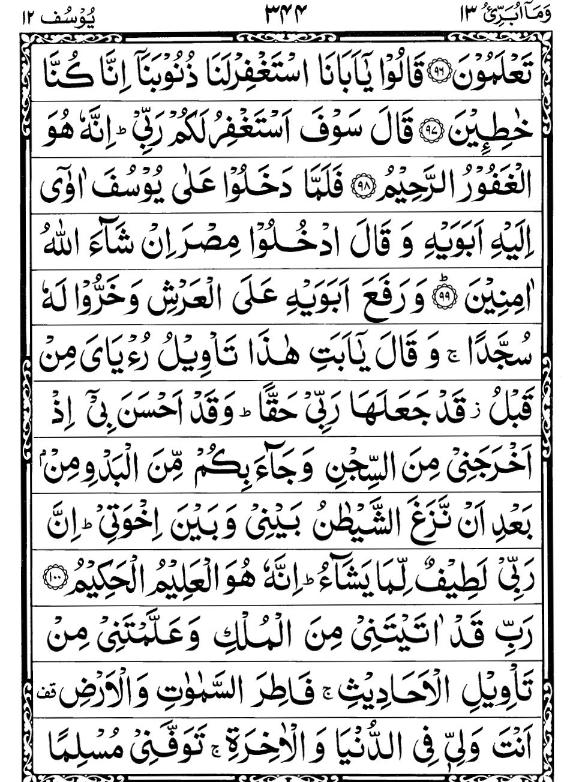 وَمَآ اُبَرِّئُ ١٣ ٣٤٤ يُوْسُف ١٢
تَعْلَمُوْنَ ﴿٩٦﴾ قَالُوْا يٰٓاَبَانَا اسْتَغْفِرْ لَنَا ذُنُوْبَنَآ اِنَّا كُنَّا
خٰطِـِٕيْنَ ﴿٩٧﴾ قَالَ سَوْفَ اَسْتَغْفِرُ لَكُمْ رَبِّيْ ؕ اِنَّهٗ هُوَ
الْغَفُوْرُ الرَّحِيْمُ ﴿٩٨﴾ فَلَمَّا دَخَلُوْا عَلٰى يُوْسُفَ اٰوٰٓى
اِلَيْهِ اَبَوَيْهِ وَ قَالَ ادْخُلُوْا مِصْرَ اِنْ شَآءَ اللّٰهُ
اٰمِنِيْنَ ﴿٩٩﴾ؕ وَ رَفَعَ اَبَوَيْهِ عَلَى الْعَرْشِ وَ خَرُّوْا لَهٗ
سُجَّدًا ۚ وَ قَالَ يٰٓاَبَتِ هٰذَا تَاْوِيْلُ رُءْيَايَ مِنْ
قَبْلُ ؗ قَدْ جَعَلَهَا رَبِّيْ حَقًّا ؕ وَ قَدْ اَحْسَنَ بِيْٓ اِذْ
اَخْرَجَنِيْ مِنَ السِّجْنِ وَ جَآءَ بِكُمْ مِّنَ الْبَدْوِ مِنْۢ
بَعْدِ اَنْ نَّزَغَ الشَّيْطٰنُ بَيْنِيْ وَ بَيْنَ اِخْوَتِيْ ؕ اِنَّ
رَبِّيْ لَطِيْفٌ لِّمَا يَشَآءُ ؕ اِنَّهٗ هُوَ الْعَلِيْمُ الْحَكِيْمُ ﴿١٠٠﴾
رَبِّ قَدْ اٰتَيْتَنِيْ مِنَ الْمُلْكِ وَ عَلَّمْتَنِيْ مِنْ
تَاْوِيْلِ الْاَحَادِيْثِ ۚ فَاطِرَ السَّمٰوٰتِ وَ الْاَرْضِ قف
اَنْتَ وَلِيّٖ فِي الدُّنْيَا وَ الْاٰخِرَةِ ۚ تَوَفَّنِيْ مُسْلِمًا